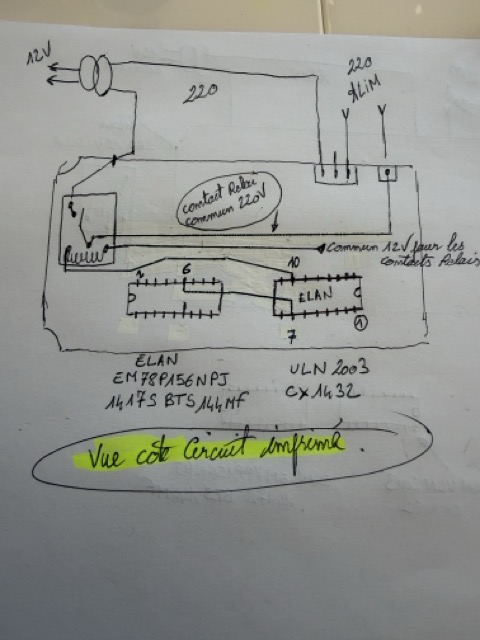 12V
220
220
ALIM
contact Relai
commun 220V
Commun 12V pour les
contacts Relais
6
10
ELAN
7
1
ELAN
EM78P156NPJ
1417S BTS144MF
ULN 2003
CX1432
Vue coté Circuit imprimé.